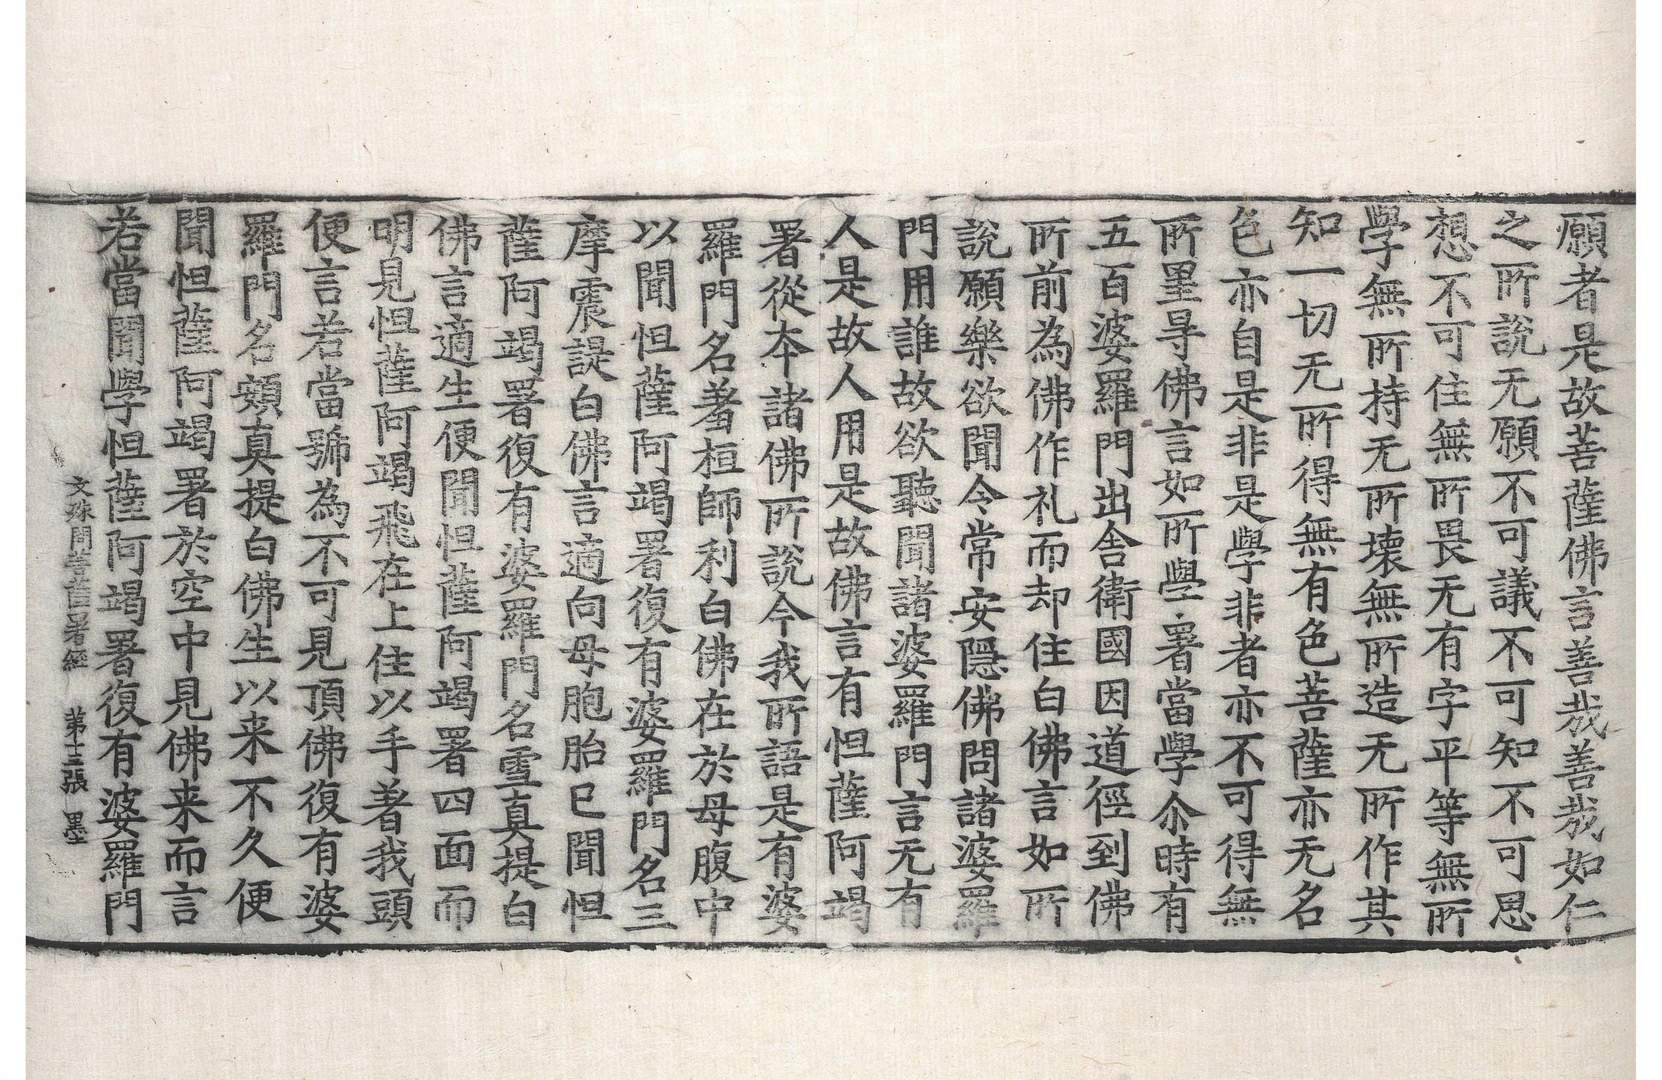 願者是故菩薩佛言善哉善哉如仁
之所說无願不可議不可知不可思
想不可住無所畏无有字平等無所
學無所持无所壞無所造无所作其
知一切无所得無有色菩薩亦无名
色亦自是非是學非者亦不可得無
所罣㝵佛言如所學署當學尒時有
五百婆羅門出舍衛國因道徑到佛
所前為佛作礼而却住白佛言如所
說願樂欲聞令常安隱佛問諸婆羅
門用誰故欲聽聞諸婆羅門言无有
人是故人用是故佛言有怛薩阿竭
署從夲諸佛所說今我所語是有婆
羅門名耆桓師利白佛在於母腹中
以聞怛薩阿竭署復有婆羅門名三
摩震諟白佛言適向母胞胎已聞怛
薩阿竭署復有婆羅門名雪真提白
佛言適生便聞怛薩阿竭署四面而
明見怛薩阿竭飛在上住以手著我頭
便言若當號為不可見頂佛復有婆
羅門名頞真提白佛生以来不久便
聞怛薩阿竭署於空中見佛来而言
若當聞學怛薩阿竭署復有婆羅門
文殊問菩薩署經 第十三張 墨